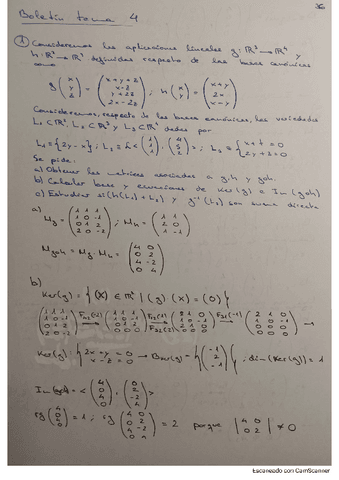 36
Boletín tema 4
① Consideremos las aplicaciones lineales g: ℝ³ → ℝ⁴ y
h: ℝ² → ℝ³ definidas respecto de las bases canónicas
como
g(x y z) = (x+y+z, x-z, y+2z, 2x-z); h(x y) = (x+y, 2x, x-y)
Consideremos, respecto de las bases canónicas, las variedades
L₁ ⊂ ℝ², L₂ ⊂ ℝ³ y L₃ ⊂ ℝ⁴ dadas por
L₁ = {2y-x}; L₂ =
L₃ = {x+t=0, 2y+z=0
Se pide:
a) Obtener las matrices asociadas a g, h y goh.
b) Calcular base y ecuaciones de Ker(g) e Im(goh)
c) Estudiar si (h(L₁)+L₂) y g⁻¹(L₃) son suma directa
a)
Mg = (1 1 1, 1 0 -1, 0 1 2, 2 0 -1); Mh = (1 1, 2 0, 1 -1)
Mgoh = Mg · Mh = (4 0, 0 2, 4 -2, 0 4)
b)
Ker(g) = {(x) ∈ ℝ³ | (g)(x) = (0)}
Ker(g): {2x+y=0, x-z=0 → B Ker(g) = {(-1, 2, -1)}; dim(Ker(g)) = 1
Im = <(4, 0, 4, 0), (0, 2, -2, 4)>
rg(4, 0, 4, 0) = 1; rg(4 0, 0 2, 4 -2, 0 4) = 2 porque |4 0, 0 2| ≠ 0
Escaneado con CamScanner